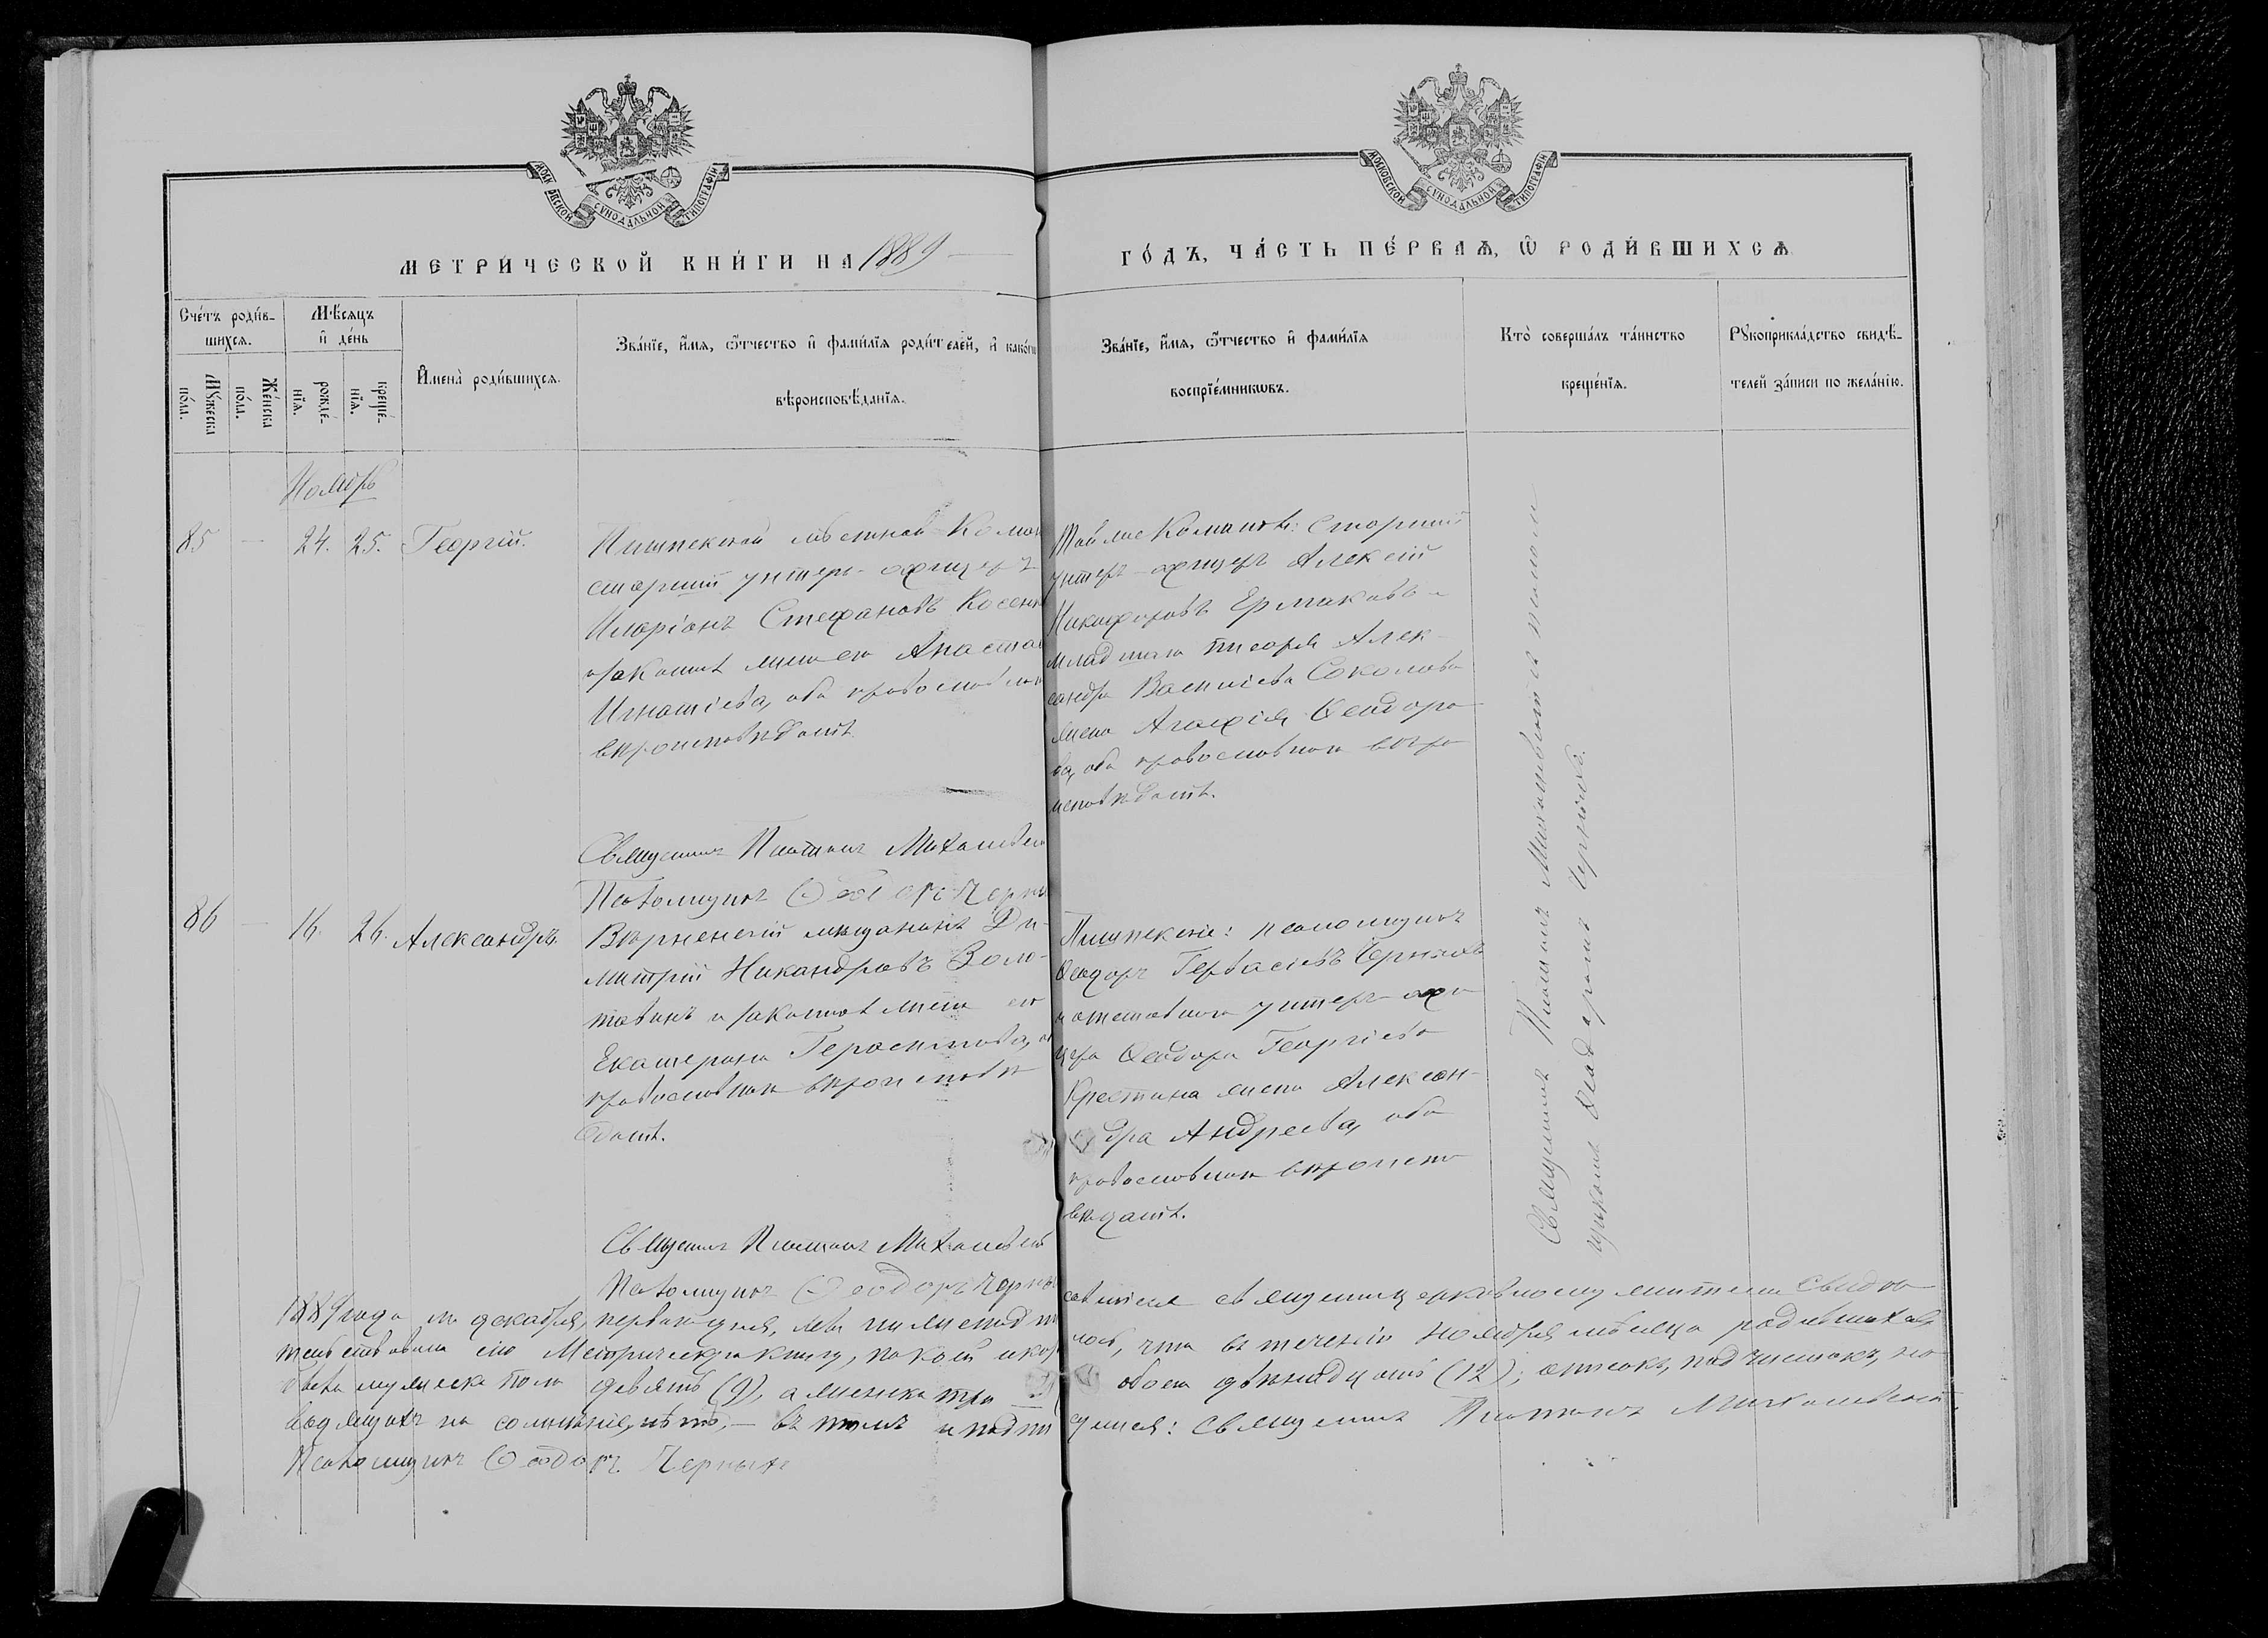 МОСКОВСКОЙ СУНОДАЛЬНОЙ ТИПОГРАФІИ
МОСКОВСКОЙ СУНОДАЛЬНОЙ ТИПОГРАФІИ
МЕТРИ́ЧЕСКОЙ КНИ́ГИ НА 1889
ГО́ДЪ, ЧА́СТЬ ПЕ́РВАѦ, Ѽ РОДИ́ВШИХСѦ
Сче́тъ роди́в-
шихсѧ.
Мѣ́сѧцъ
и҆ де́нь
Мꙋ́жеска
по́ла.
Же́нска
по́ла.
рожде́-
нїѧ.
креще́-
нїѧ.
И҆мена̀ роди́вшихсѧ.
Зва́нїе, и҆́мѧ, ѻ҆́тчество и҆ фами́лїѧ роди́телей, и҆ како́гѡ
вѣроисповѣ́данїѧ.
Зва́нїе, и҆́мѧ, ѻ҆́тчество и҆ фами́лїѧ
воспрїе́мникѡвъ.
Кто̀ соверша́лъ та́инство
креще́нїѧ.
Рꙋкоприкла́дство свидѣ́-
телей за́писи по жела́нїю.
Ноябрь
85 — 24. 25. Георгій.
Пишпекской мѣстной Коман
старшій унтеръ-офицеръ
Иларіонъ Стефановъ Косенк
и законная жена его Анастас
Игнатіева, оба православнаго
вѣроисповѣданія
Той же Команды: Старшій
унтеръ-офицеръ Алексій
Никифоровъ Ермаковъ и
младшаго писаря Алек-
сандра Василіева Соколова
жена Агафія Ѳеодоро-
ва, оба православнаго вѣро
исповѣданія.
Священникъ Платонъ Михайловскій
Псаломщикъ Ѳеодоръ Черны
86 — 16. 26. Александръ.
Вѣрненскій мѣщанинъ Ди-
митрій Никандровъ Золо-
тавинъ и законная жена его
Екатерина Герасимова, об
православнаго вѣроисповѣ
данія.
Пишпекскіе: псаломщикъ
Ѳеодоръ Гервасіевъ Черныхъ
и отставнаго унтеръ-офи
цера Ѳеодора Георгіева
Крестина жена Алексан-
дра Андреева, оба
православнаго вѣроиспо
вѣданія.
Священникъ Платонъ Михайловскій съ псаломщи
комъ Ѳеодоромъ Черныхъ.
Священникъ Платонъ Михайловскій
Псаломщикъ Ѳеодоръ Черны
1889 года м. декабря, перваго дня, мы нижеподпи савшіеся священноцерковнослужители свидѣ-
тельствовали сію Метрическую книгу, по коей оказа лось, что въ теченіи Ноября мѣсяца родившихся
мужеска пола девять (9), а женска три (3) обоего двѣнадцать (12); описокъ, подчистокъ, на
водящихъ на сомнѣніе, нѣтъ, — въ томъ и подпи суемся: Священникъ Платонъ Михайловскій.
Псаломщикъ Ѳеодоръ Черныхъ